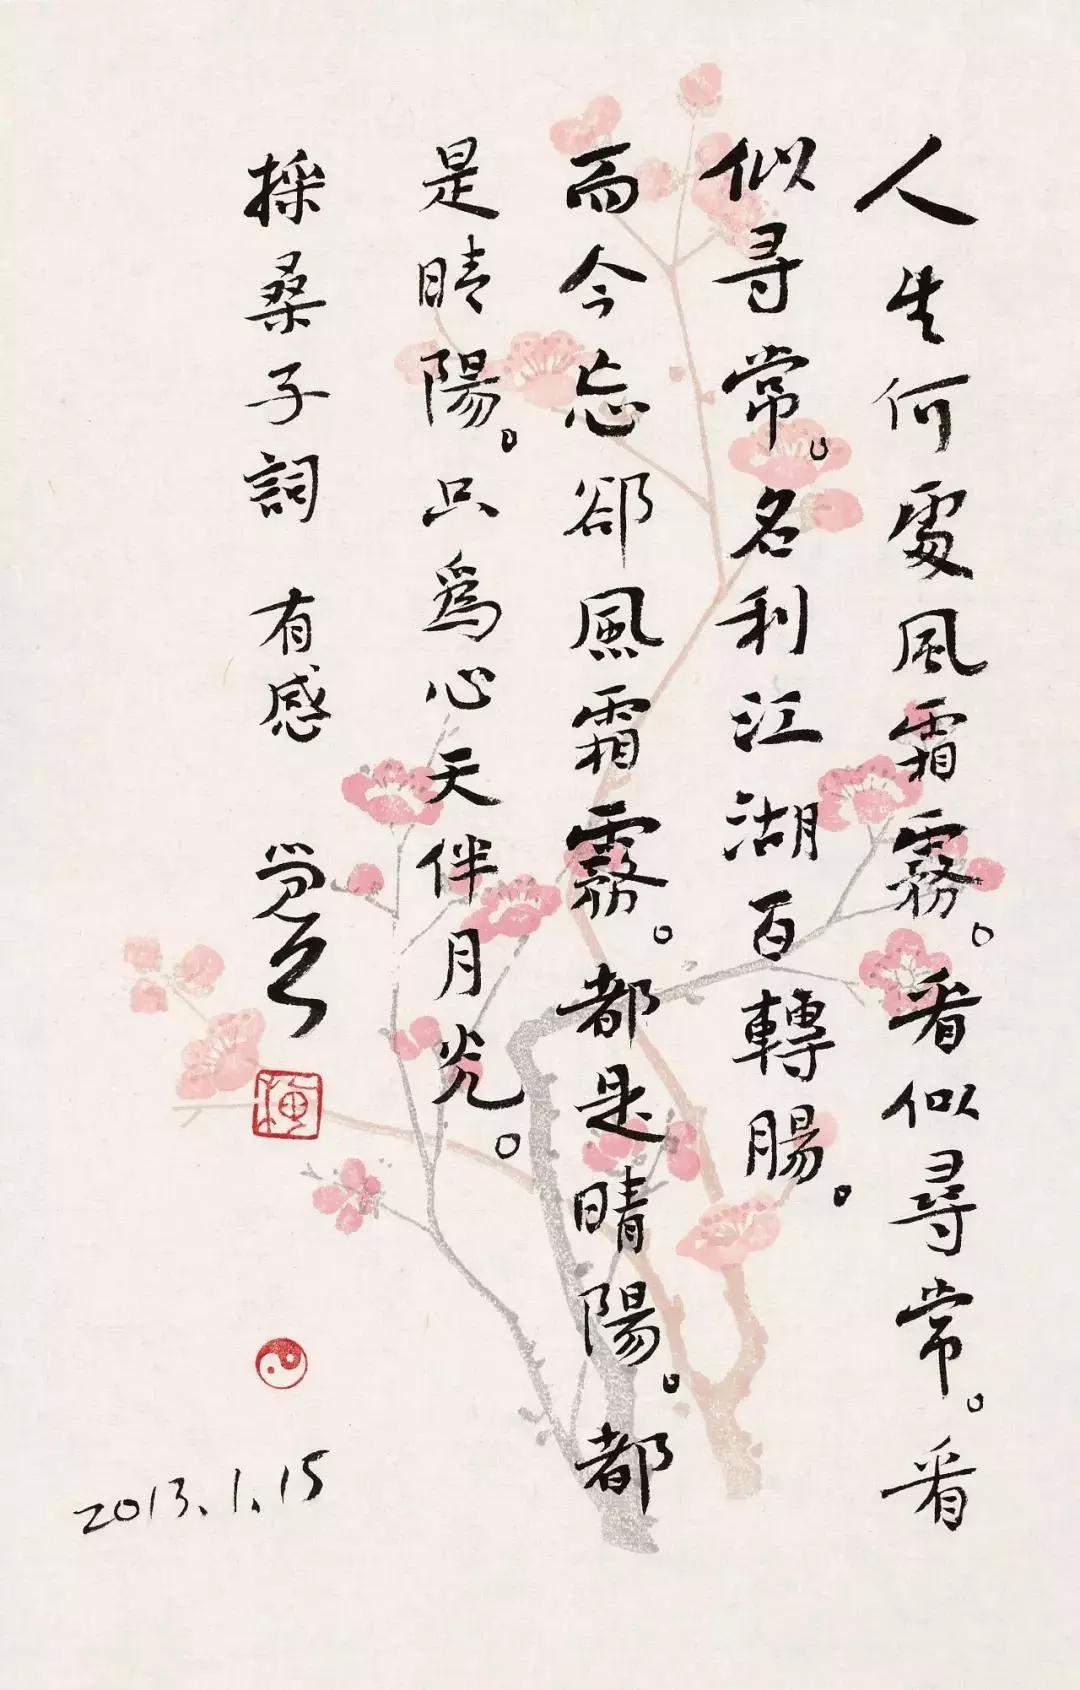 人生何處風霜霧。看似尋常。看
似尋常。名利江湖百轉腸。
而今忘卻風霜霧。都是晴陽。都
是晴陽。只為心天伴月光。
採桑子詞 有感
2013.1.15